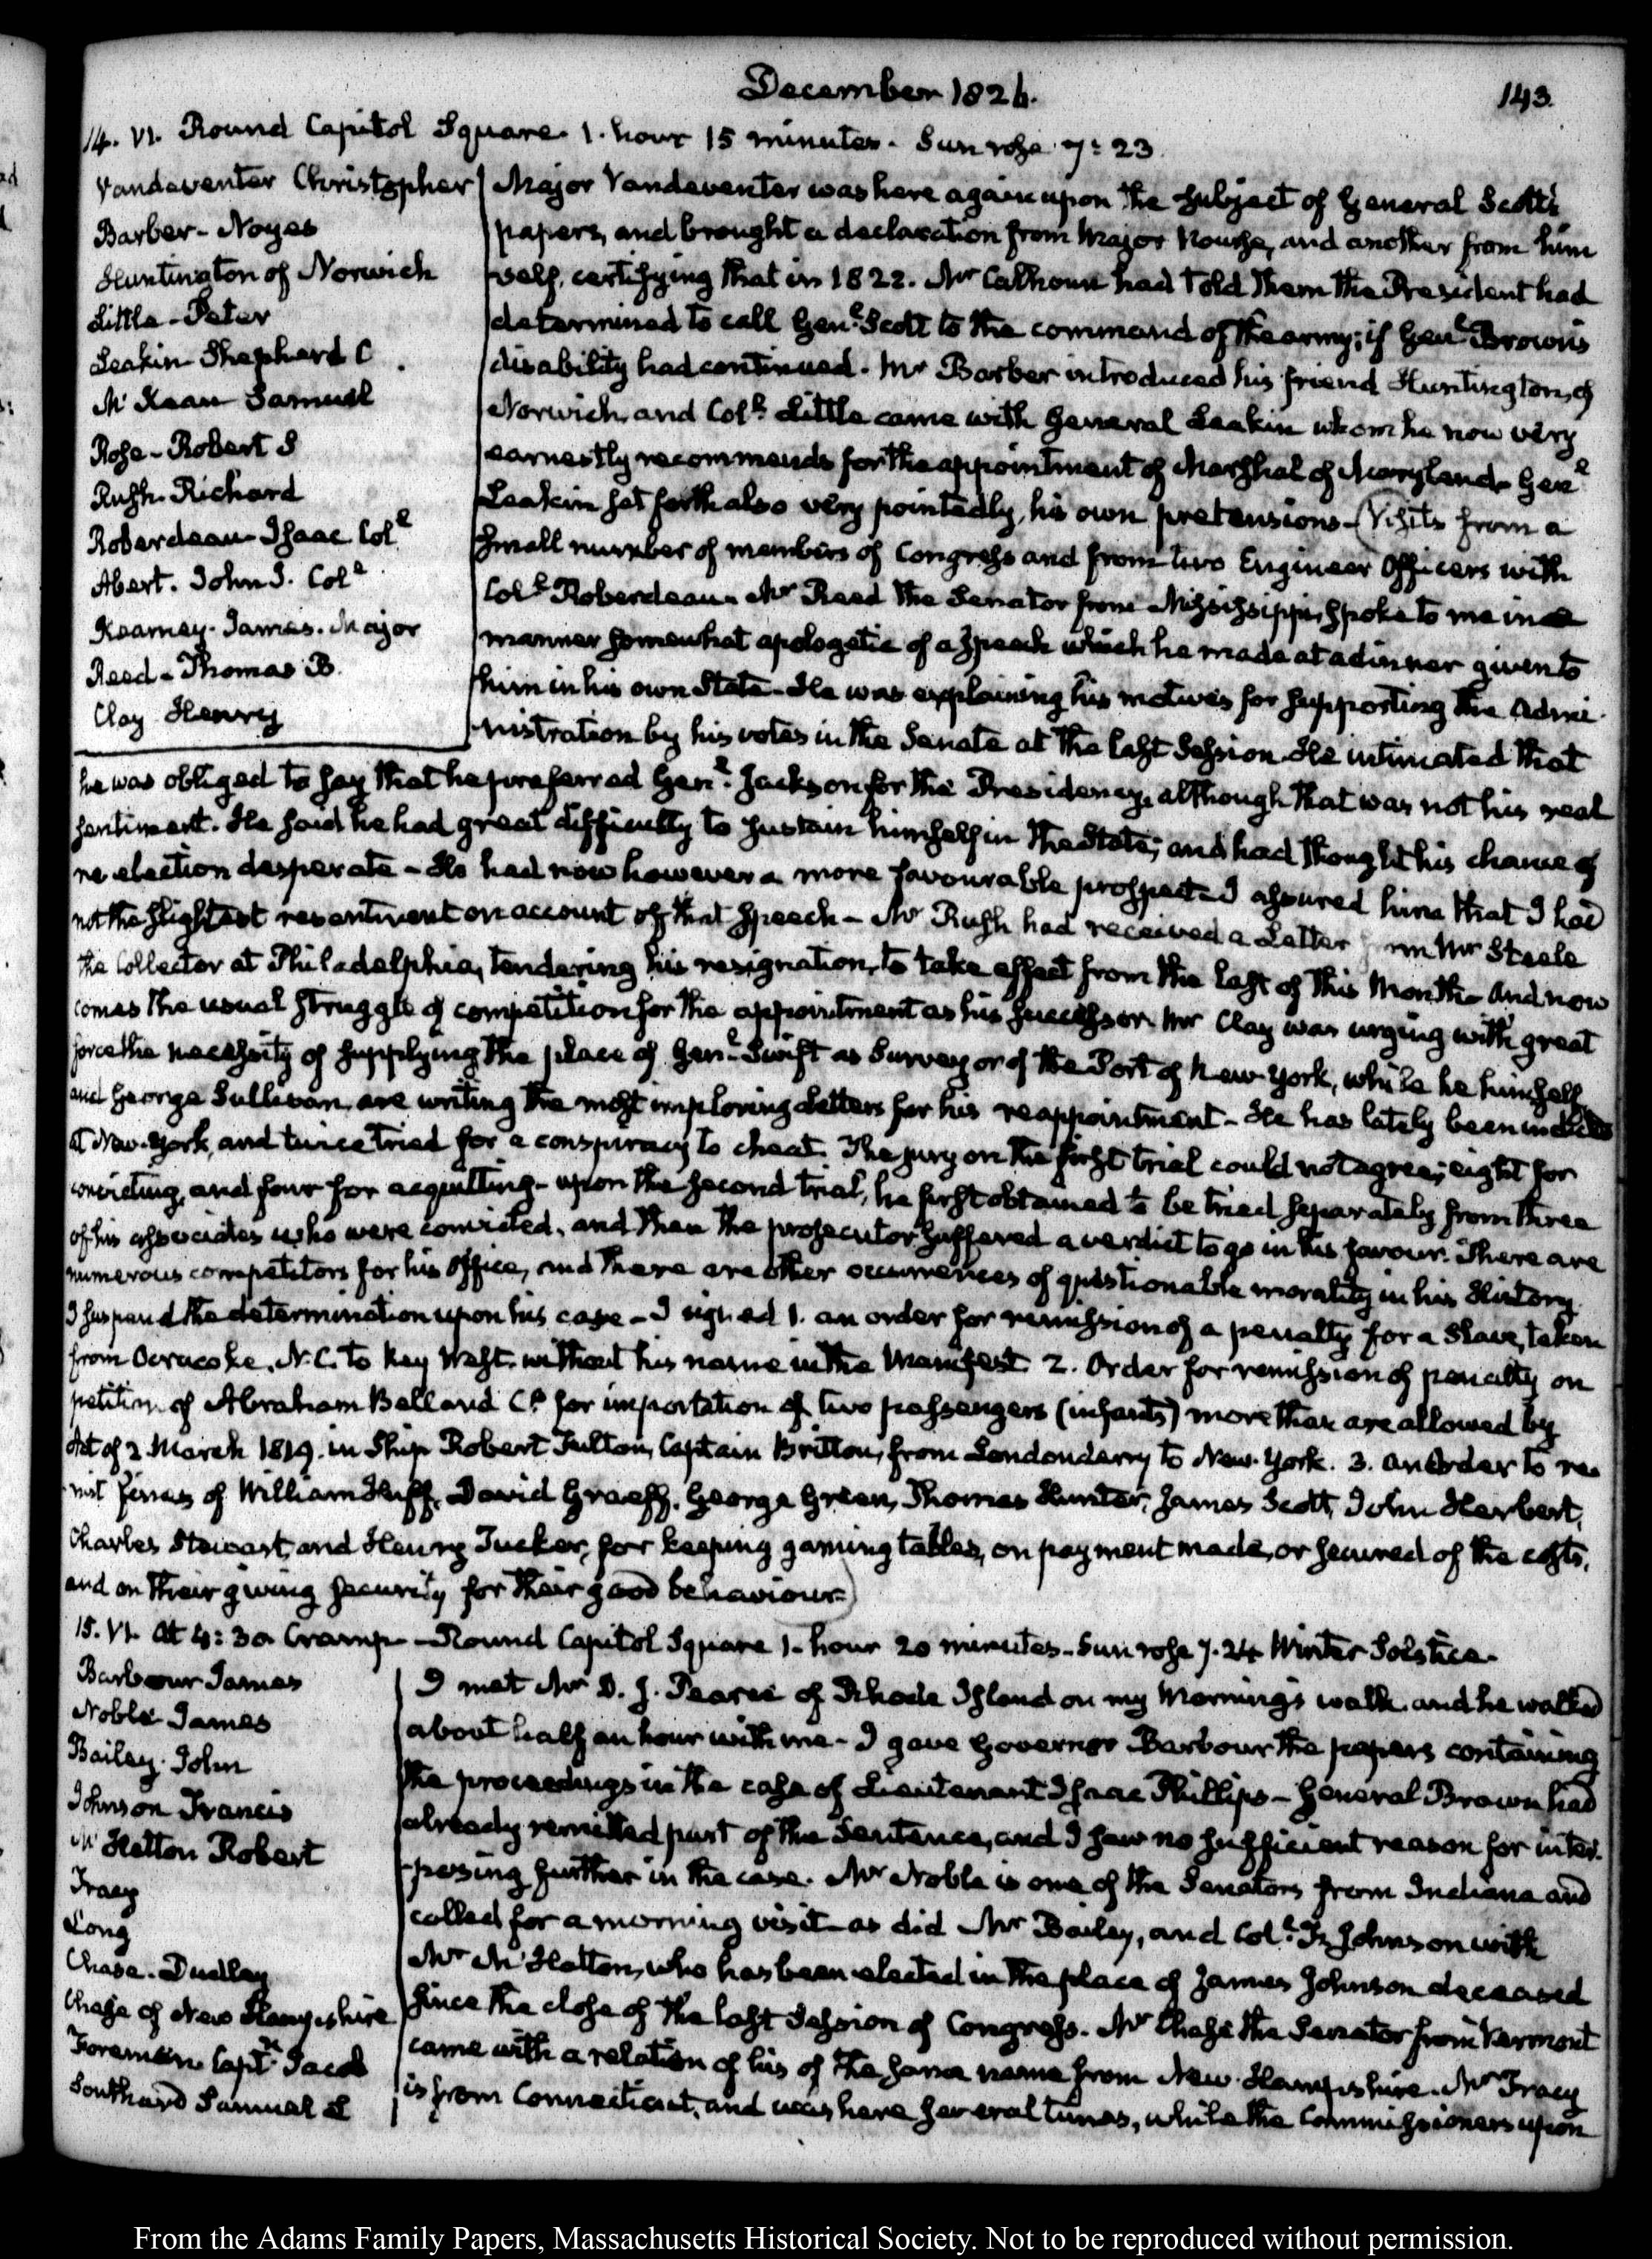 December 1826.
143.
14. VI. Round Capitol Square. 1. hour 15 minutes. Sun rose 7:23
Vandeventer Christopher
Barber - Noyes
Huntington of Norwich
Little - Peter
Leakin Shephard C
McKean Samuel
Rose - Robert S
Rush. Richard
Roberdeau - Isaac Coll
Abert. John J. Coll
Kearney. James. Major
Reed - Thomas B.
Clay Henry
Major Vandeventer was here again upon the subject of General Scott's
papers, and brought a declaration from Major Nourse, and another from him
self, certifying that in 1822. Mr Calhoun had told them the President had
determined to call Genl Scott to the command of the army; if Genl Brown's
disability had continued. Mr Barber introduced his friend Huntington, of
Norwich and Coll Little came with General Leakin whom he now very
earnestly recommends for the appointment of Marshal of Maryland. Genl
Leakin set forth also very pointedly, his own pretensions - (Visits from a
small number of members of Congress and from two Engineer Officers with
Coll Roberdeau. Mr Reed the Senator from Mississippi, spoke to me in a
manner somewhat apologetic of a speech which he made at a dinner given to
him in his own State. He was explaining his motives for supporting the Admi-
nistration by his votes in the Senate at the last Session. He intimated that
he was obliged to say that he preferred Genl Jackson for the Presidency, although that was not his real
sentiment. He said he had great difficulty to sustain himself in the State; and had thought his chance of
re election desperate - He had now however a more favourable prospect. I assured him that I had
not the slightest resentment on account of that Speech - Mr Rush had received a Letter from Mr Steele
the Collector at Philadelphia, tendering his resignation, to take effect from the last of this Month. And now
comes the usual struggle of competition for the appointment as his successor. Mr Clay was urging with great
force the necessity of supplying the place of Genl Swift as Surveyor of the Port of New York, while he himself
and George Sullivan, are writing the most imploring Letters for his reappointment - He has lately been indicted
at New-York, and twice tried for a conspiracy to cheat. The jury on the first trial could not agree; eight for
convicting, and four for acquitting - upon the second trial, he first obtained to be tried separately from three
of his associates who were convicted, and then the prosecutor suffered a verdict to go in his favour. There are
numerous competitors for his Office, and there are other occurrences of questionable morality in his History.
I suspend the determination upon his case - I signed 1. an order for remission of a penalty for a Slave, taken
from Ocracoke. N.C. to Key West. without his name in the Manifest. 2. Order for remission of penalty on
petition of Abraham Bell and Co for importation of two passengers (infants) more than are allowed by
Act of 2 March 1819. in Ship Robert Fulton, Captain Britton, from Londonderry to New-York. 3. an Order to re-
mit fines of William Huff, David Graeff. George Green, Thomas Hunter, James Scott, John Herbert,
Charles Stewart and Henry Tucker, for keeping gaming tables, on payment made, or secured of the costs,
and on their giving security for their good behaviour.)
15. VI. at 4:30 Cramp - Round Capitol Square 1. hour 20 minutes - Sun rose 7.24 Winter Solstice.
Barbour James
Noble James
Bailey. John
Johnson Francis
McHatton Robert
Tracy
Long
Chase. Dudley
Chase of New Hampshire
Foreman Captn Jacob
Southard Samuel L
I met Mr D. J. Pearce of Rhode Island on my Morning's walk and he walked
about half an hour with me - I gave Governor Barbour the papers containing
the proceedings in the case of Lieutenant Isaac Phillips - General Brown had
already remitted part of the Sentence, and I saw no sufficient reason for inter-
posing further in the case. Mr Noble is one of the Senators from Indiana and
called for a morning visit as did Mr Bailey, and Coll F. Johnson with
Mr McHatton, who has been elected in the place of James Johnson deceased
since the close of the last Session of Congress. Mr Chase the Senator from Vermont
came with a relation of his of the same name from New-Hampshire. Mr Tracy
is from Connecticut, and was here several times, while the Commissioners upon
From the Adams Family Papers, Massachusetts Historical Society. Not to be reproduced without permission.